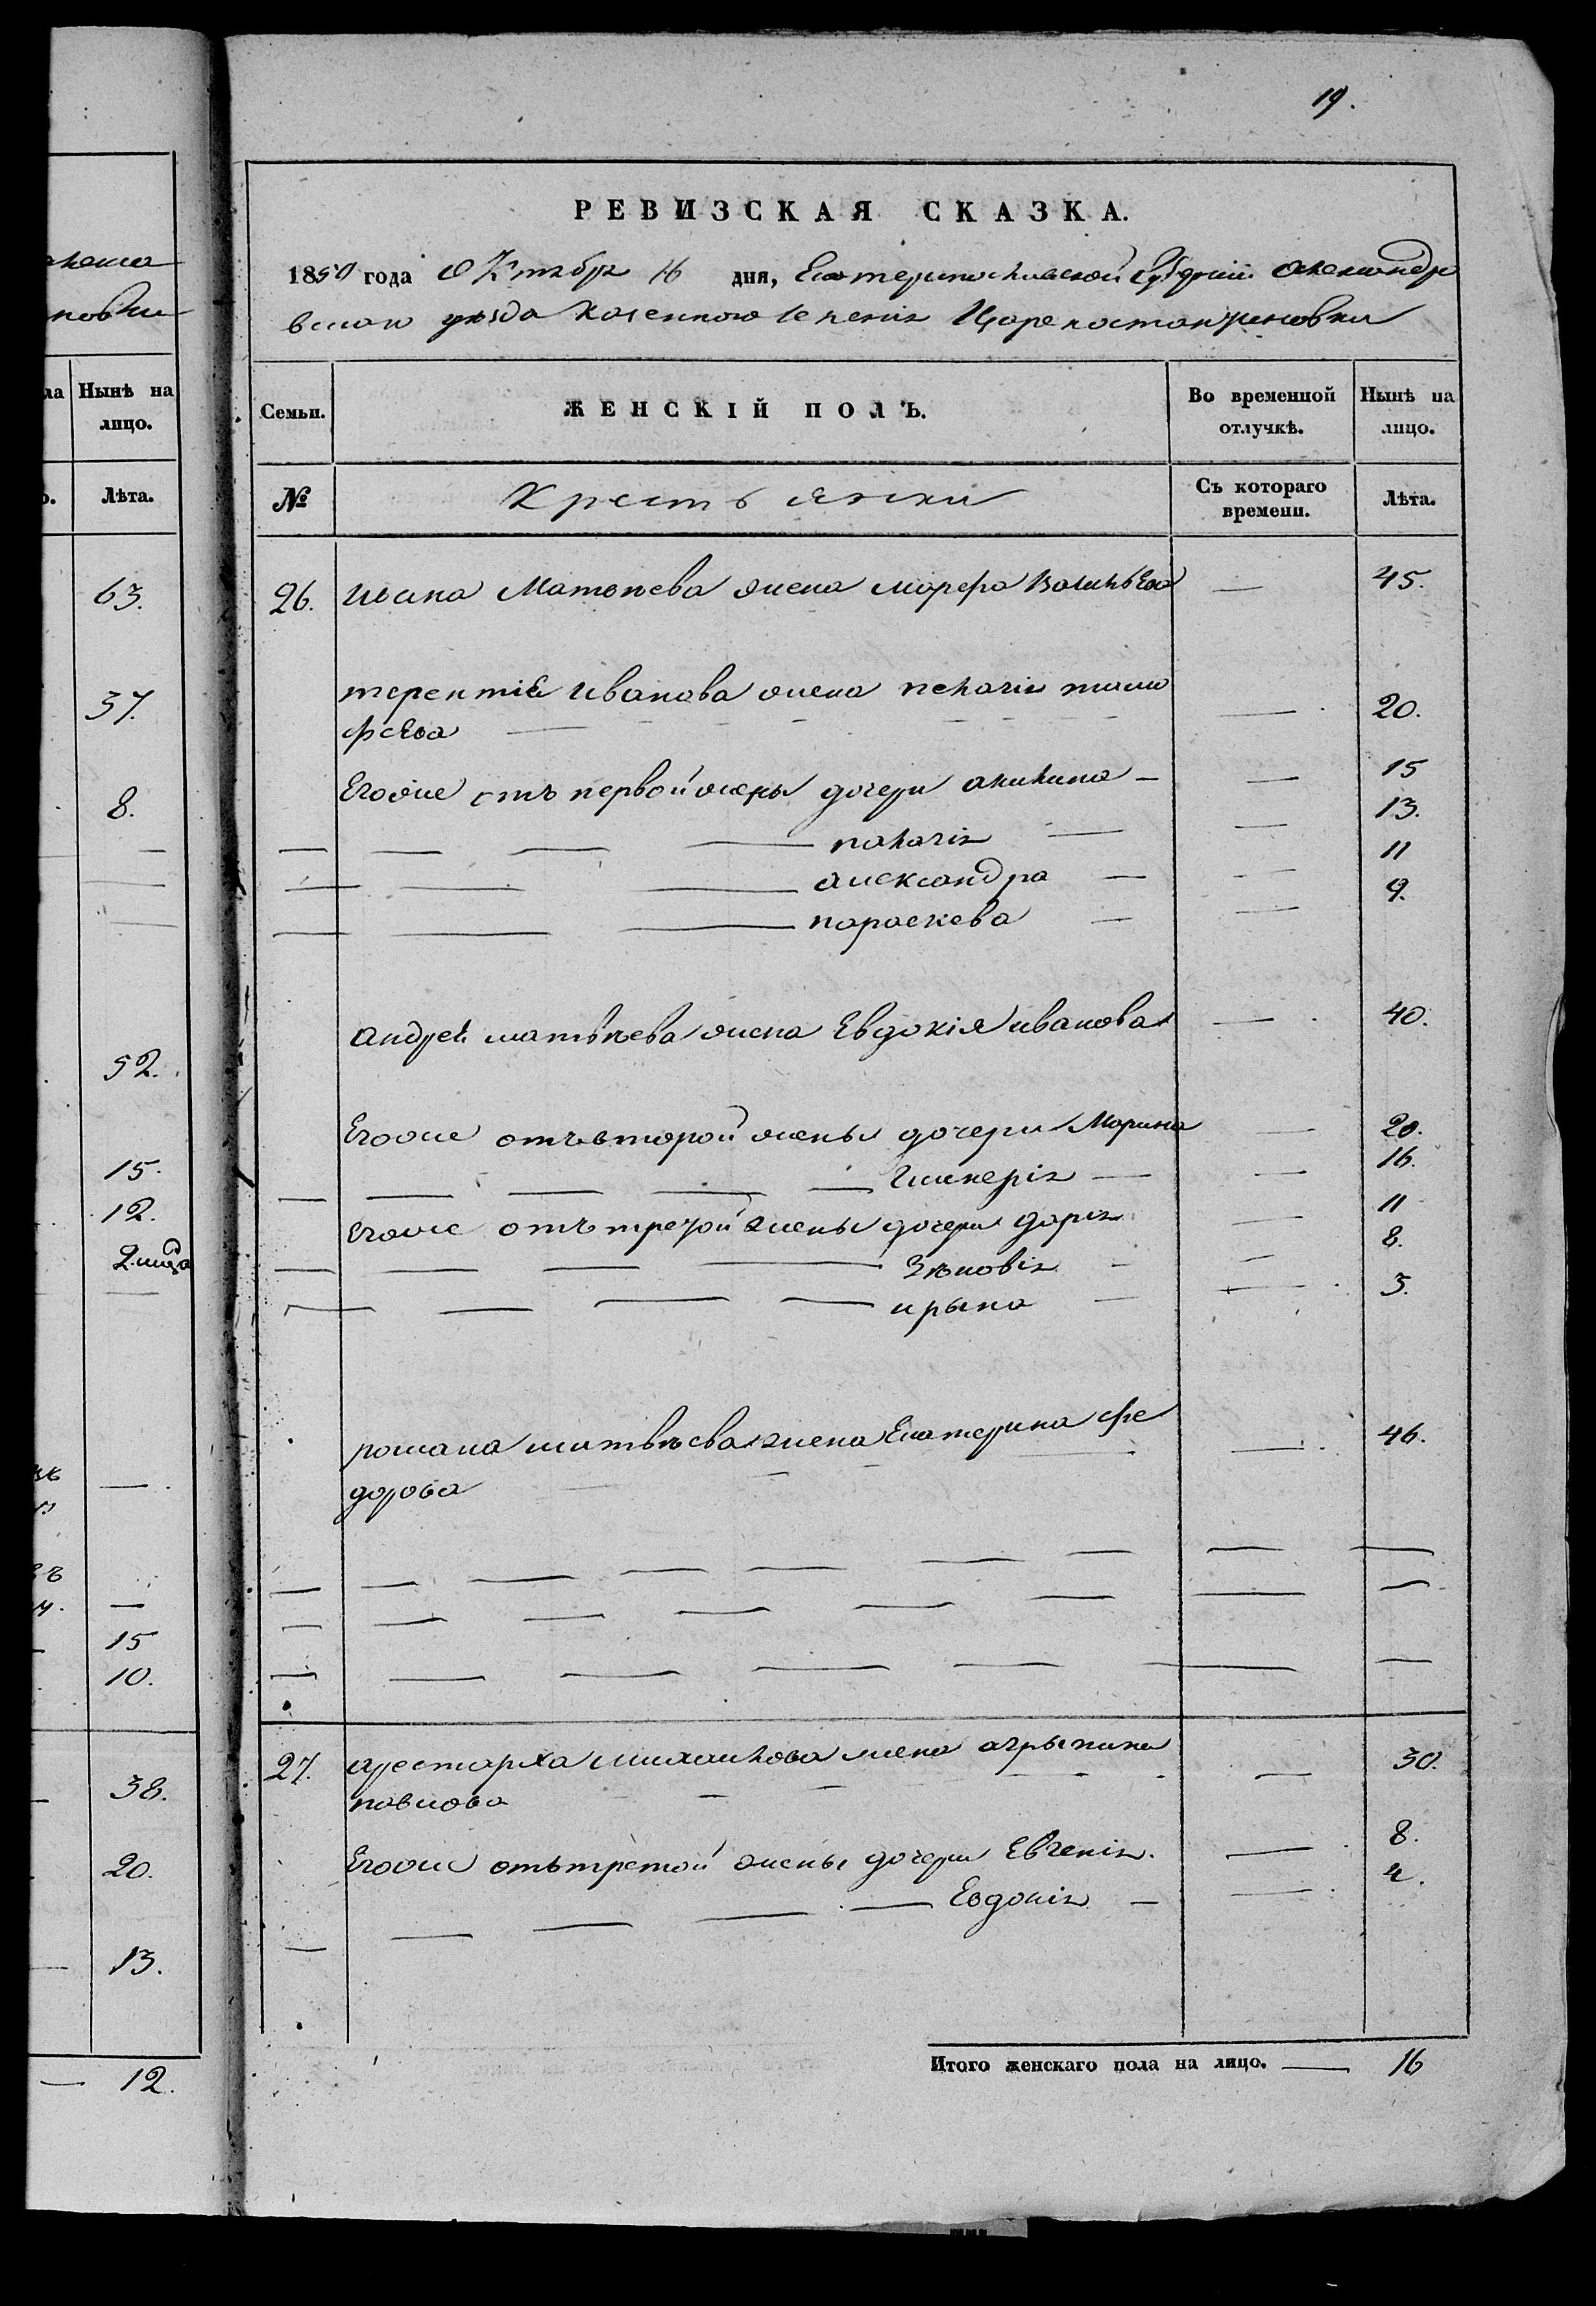 19.
РЕВИЗСКАЯ СКАЗКА.
1850 года Октября 16 дня, Екатеринославской Губернии Александро
вскаго уѣзда казеннаго селения Цареконстантиновки
Нынѣ на
лицо.
Лѣта.
63.
37.
8.
52.
15.
12.
15
10.
38.
20.
13.
12.
Семьи.
ЖЕНСКІЙ ПОЛЪ.
Во временной
отлучкѣ.
Нынѣ на
лицо.
№
Крестьянки
Съ котораго
времени.
Лѣта.
26. Ивана Матвѣева жена марфа Васильева — 45.
терентія Иванова жена пелагія тимо
фѣева — 20.
Егоже отъ первой жены дочери акилина — 15
пелагія — 13.
александра — 11
параскева — 9.
андрея матвѣева жена Евдокія иванова — 40.
Егоже отъ второй жены дочери Марина — 20.
Гликерія — 16.
Егоже отъ третой жены дочери дарія — 11
Зѣновія — 8.
ирына — 3.
романа матвѣева жена Екатерина фе
дорова — 46.
27. арестарха михаилова жена агрыпина
павлова — 30.
Егоже отъ третой жены дочери Евгенія — 8.
Евдокія — 4.
Итого женскаго пола на лицо. — 16